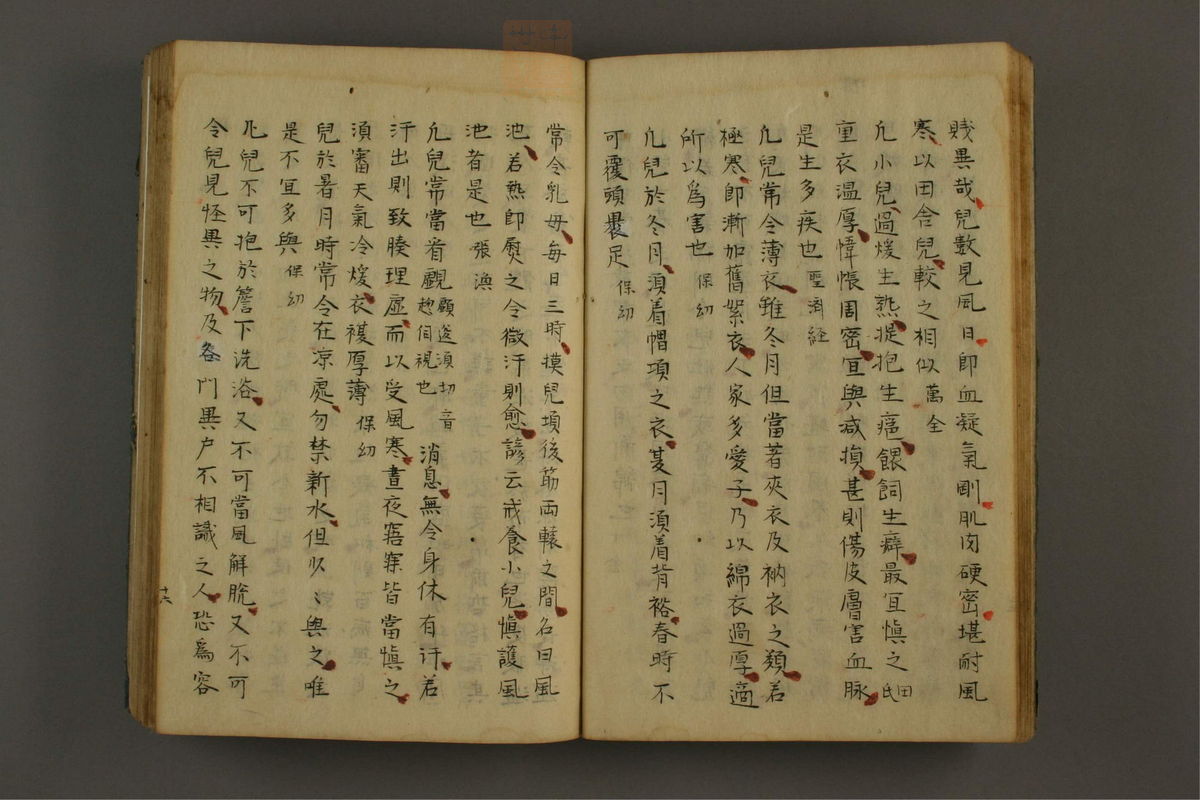 賎異哉兒數見風日即血凝氣剛肌肉硬密堪耐風
寒以田舍兒較之相似 萬全
凢小兒過煖生熱提抱生㾴餵飼生癖最宜愼之 田氏
重衣温厚幃帳周密宜與減損甚則傷皮膚害血脉
是生多疾也 聖濟経
凢兒常令薄衣雖冬月但當著夾衣及衲衣之類若
極寒即漸加舊絮衣人家多愛子乃以綿衣過厚適
所以爲害也 保幼
凢兒於冬月湏着帽項之衣夏月湏着背褡春時不
可覆頭褁足 保幼
常令乳母每日三時摸兒項後筋兩轅之間名曰風
池若熱即熨之令微汗則愈諺云戒養小兒愼護風
池者是也 張渙
凢兒常當看覰 顧遂湏切音揔伺視也 消息無令身体有汗若
汗出則致腠理虚而以受風寒晝夜寤寐皆當愼之
湏審天氣冷煖衣複厚薄 保幼
兒於暑月時常令在凉處勿禁新水但少〻與之唯
是不宜多與 保幼
凢兒不可抱於簷下洗浴又不可當風解脫又不可
令兒見怪異之物及各門異户不相識之人恐爲容
十六